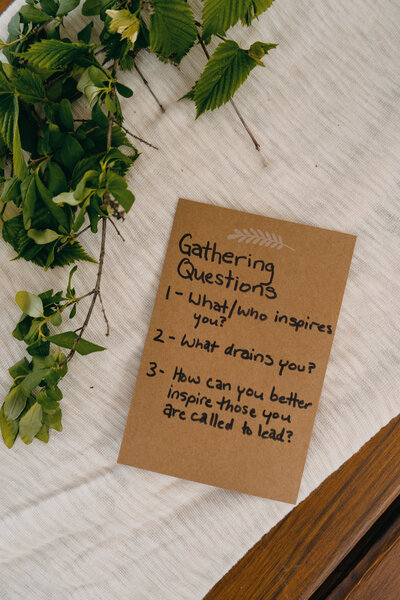 Gathering
Questions
1 - What/who inspires
you?
2 - What drains you?
3 - How can you better
inspire those you
are called to lead?